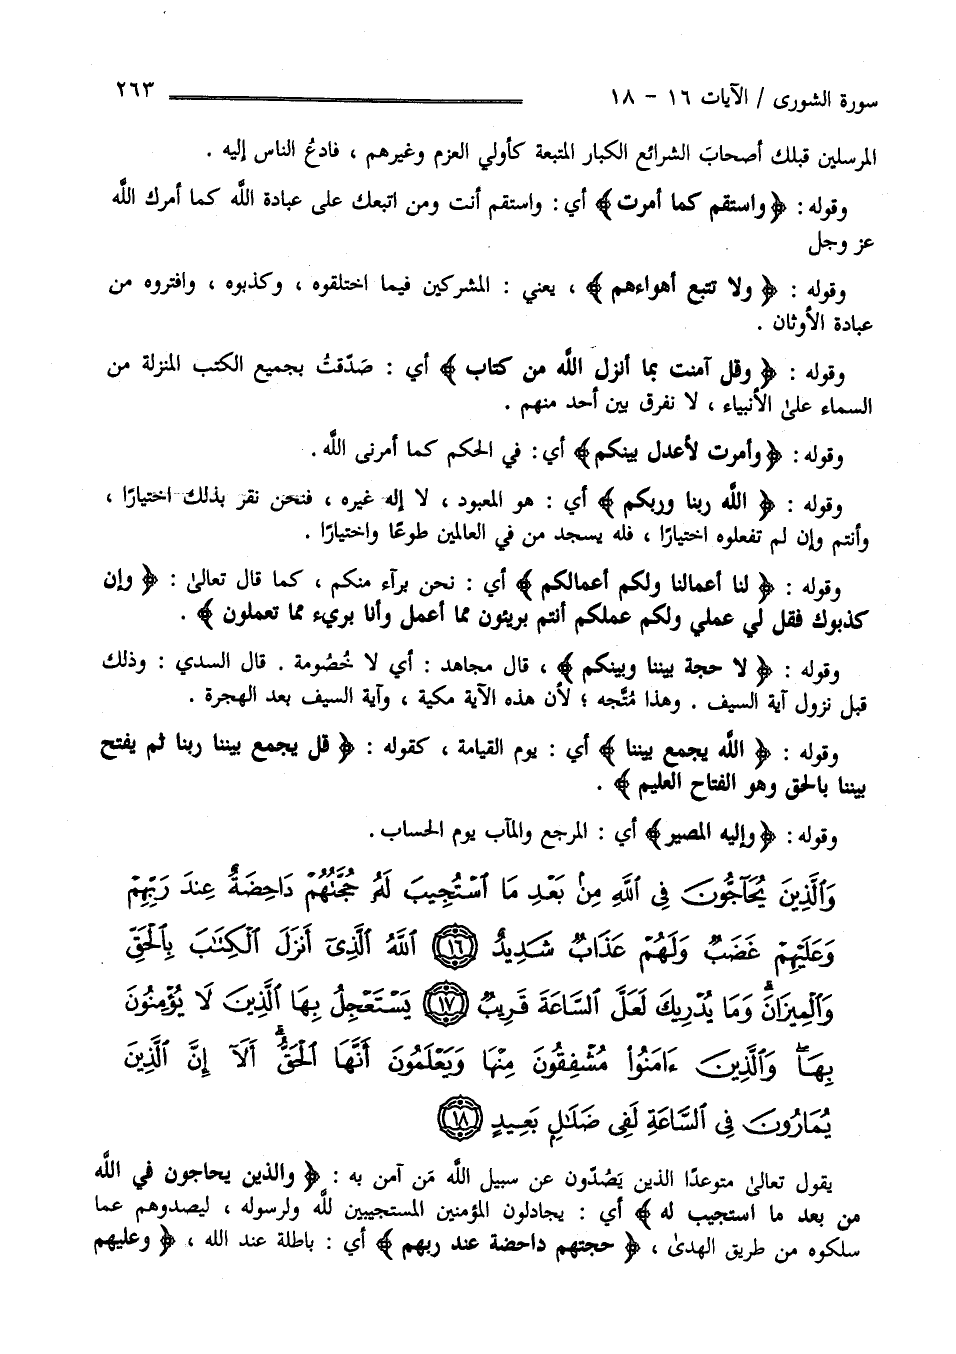 سورة الشورى / الآيات ١٦ - ١٨ ٢٦٣
المرسلين قبلك أصحابَ الشرائع الكبار المتبعة كأولي العزم وغيرهم ، فادعُ الناس إليه .
وقوله : ﴿ واستقم كما أمرت ﴾ أي : واستقم أنت ومن اتبعك على عبادة الله كما أمرك الله
عز وجل
وقوله : ﴿ ولا تتبع أهواءهم ﴾ ، يعني : المشركين فيما اختلقوه ، وكذبوه ، وافتروه من
عبادة الأوثان .
وقوله : ﴿ وقل آمنت بما أنزل الله من كتاب ﴾ أي : صَدّقتُ بجميع الكتب المنزلة من
السماء علىٰ الأنبياء ، لا نفرق بين أحد منهم .
وقوله : ﴿ وأمرت لأعدل بينكم ﴾ أي : في الحكم كما أمرنى الله .
وقوله : ﴿ الله ربنا وربكم ﴾ أي : هو المعبود ، لا إله غيره ، فنحن نقر بذلك اختيارًا ،
وأنتم وإن لم تفعلوه اختيارًا ، فله يسجد من في العالمين طوعًا واختيارًا .
وقوله : ﴿ لنا أعمالنا ولكم أعمالكم ﴾ أي : نحن برآء منكم ، كما قال تعالىٰ : ﴿ وإن
كذبوك فقل لي عملي ولكم عملكم أنتم بريئون مما أعمل وأنا بريء مما تعملون ﴾ .
وقوله : ﴿ لا حجة بيننا وبينكم ﴾ ، قال مجاهد : أي لا خُصُومة . قال السدي : وذلك
قبل نزول آية السيف . وهذا مُتَّجه ؛ لأن هذه الآية مكية ، وآية السيف بعد الهجرة .
وقوله : ﴿ الله يجمع بيننا ﴾ أي : يوم القيامة ، كقوله : ﴿ قل يجمع بيننا ربنا ثم يفتح
بيننا بالحق وهو الفتاح العليم ﴾ .
وقوله : ﴿ وإليه المصير ﴾ أي : المرجع والمآب يوم الحساب .
وَٱلَّذِينَ يُحَآجُّونَ فِى ٱللَّهِ مِنۢ بَعْدِ مَا ٱسْتُجِيبَ لَهُۥ حُجَّتُهُمْ دَاحِضَةٌ عِندَ رَبِّهِمْ
وَعَلَيْهِمْ غَضَبٌ وَلَهُمْ عَذَابٌ شَدِيدٌ ١٦ ٱللَّهُ ٱلَّذِىٓ أَنزَلَ ٱلْكِتَٰبَ بِٱلْحَقِّ
وَٱلْمِيزَانَۗ وَمَا يُدْرِيكَ لَعَلَّ ٱلسَّاعَةَ قَرِيبٌ ١٧ يَسْتَعْجِلُ بِهَا ٱلَّذِينَ لَا يُؤْمِنُونَ
بِهَاۖ وَٱلَّذِينَ ءَامَنُوا۟ مُشْفِقُونَ مِنْهَا وَيَعْلَمُونَ أَنَّهَا ٱلْحَقُّۗ أَلَآ إِنَّ ٱلَّذِينَ
يُمَارُونَ فِى ٱلسَّاعَةِ لَفِى ضَلَٰلٍۭ بَعِيدٍ ١٨
يقول تعالىٰ متوعدًا الذين يَصُدّون عن سبيل الله مَن آمن به : ﴿ والذين يحاجون في الله
من بعد ما استجيب له ﴾ أي : يجادلون المؤمنين المستجيبين لله ولرسوله ، ليصدوهم عما
سلكوه من طريق الهدىٰ ، ﴿ حجتهم داحضة عند ربهم ﴾ أي : باطلة عند الله ، ﴿ وعليهم